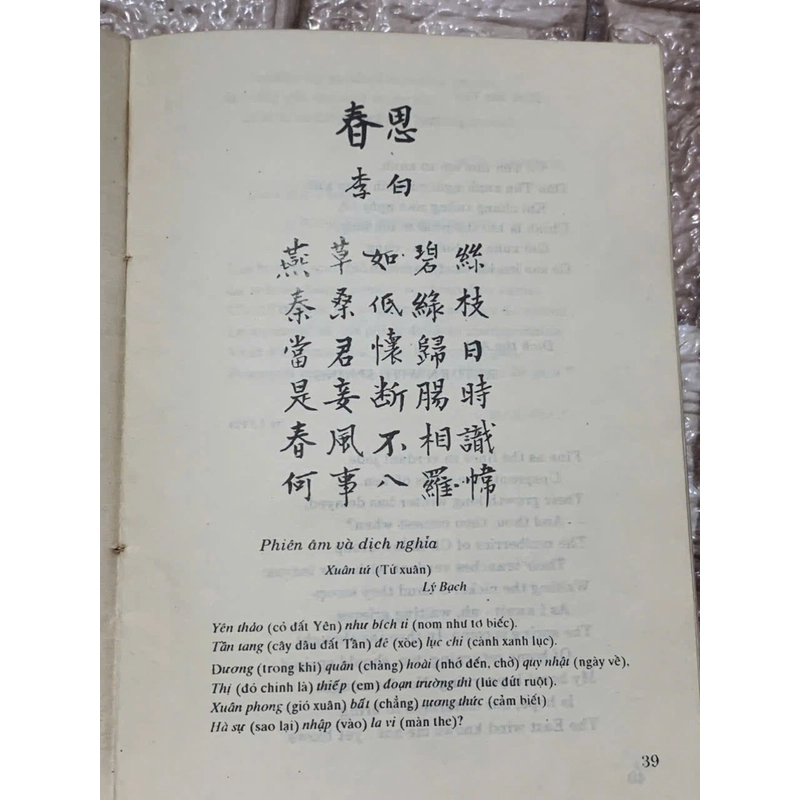 春思
李白
燕草如碧絲
秦桑低綠枝
當君懷歸日
是妾断腸時
春風不相識
何事八羅幃
Phiên âm và dịch nghĩa
Xuân tứ (Tứ xuân)
Lý Bạch
Yên thảo (cỏ đất Yên) như bích ti (nom như tơ biếc).
Tần tang (cây dâu đất Tần) đê (xòe) lục chi (cành xanh lục).
Dương (trong khi) quân (chàng) hoài (nhớ đến, chờ) quy nhật (ngày về),
Thị (đó chính là) thiếp (em) đoạn trường thì (lúc đứt ruột).
Xuân phong (gió xuân) bất (chẳng) tương thức (cảm biết)
Hà sự (sao lại) nhập (vào) la vi (màn the)?
39